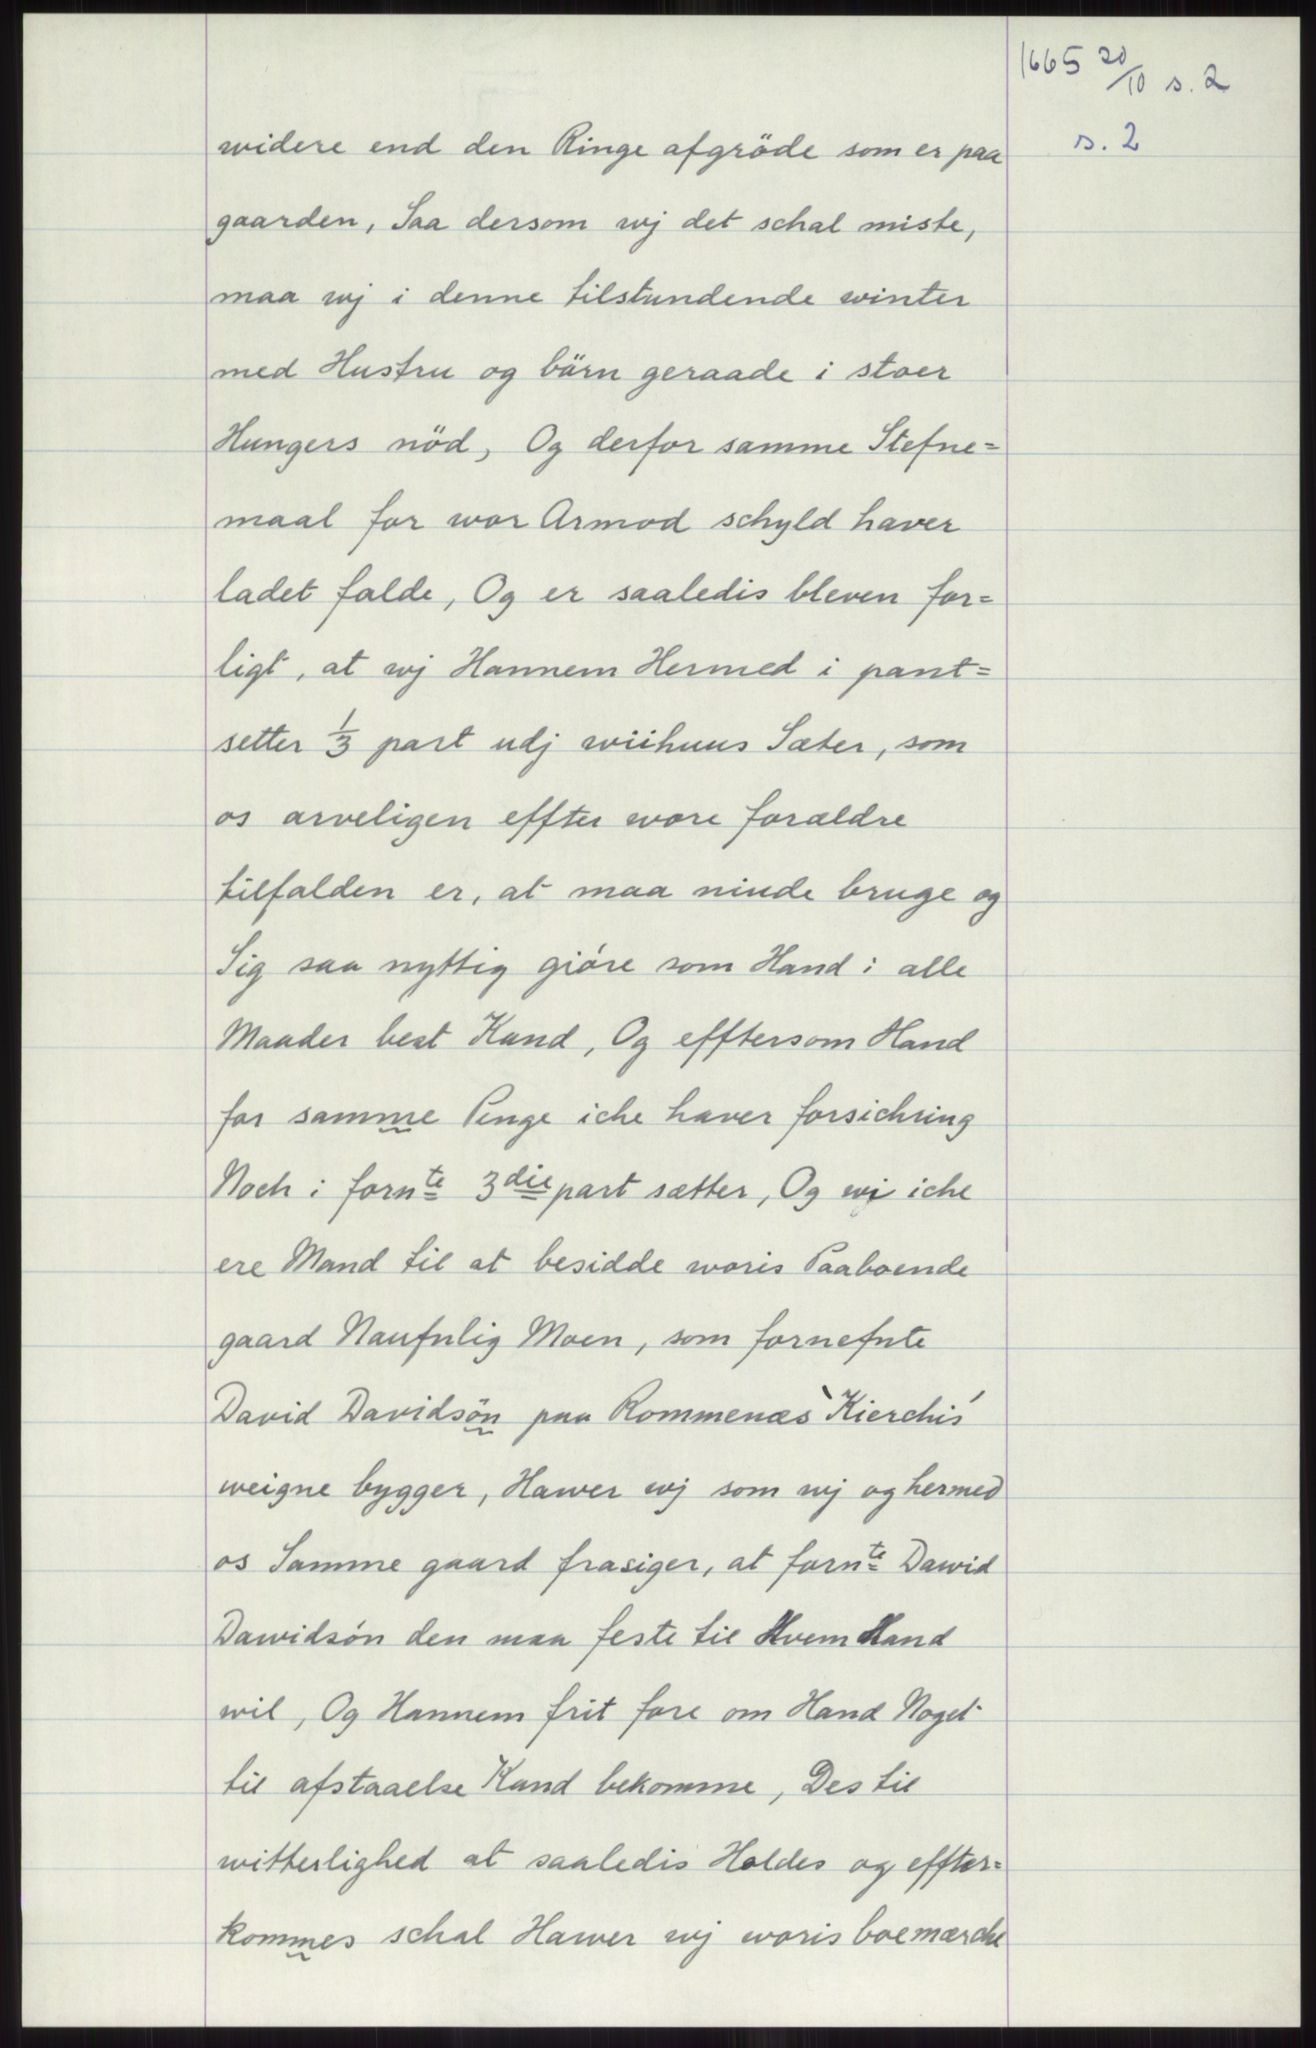 1665 20/10 s. 2
s. 2
widere end den Ringe afgröde som er paa
gaarden, Saa dersom wj det schal miste,
maa wj i denne tilstundende winter
med Hustru og börn geraade i stoer
Hungers nöd, Og derfor samme Stefne=
maal for wor Armod schyld haver
ladet falde, Og er saaledis bleven for=
ligt, at wj Hannem Hermed i pant=
setter 1/3 part udj wiihuus Sæter, som
os arveligen effter wore forældre
tilfalden er, at maa niude bruge og
Sig saa nyttig gióre som Hand i alle
Maader best Kand, Og efftersom Hand
for samme Penge iche haver forsichring
Noch i fornte 3die part sætter, Og wj iche
ere Mand til at besidde woris Paaboende
gaard Naufnlig Moen, som fornefnte
David Davidsön paa Rommenæs Kierchis
weigne bygger, Hawer wj som wj og hermed
os Samme gaard frasiger, at fornte Dawid
Dawidsón den maa feste til Hvem Hand
wil, Og Hannem frit fore om Hand Noget
til afstaaelse Kand bekomme, Des til
witterlighed at saaledis Holdes og effter=
kommes schal Hawer wj woris boemærche